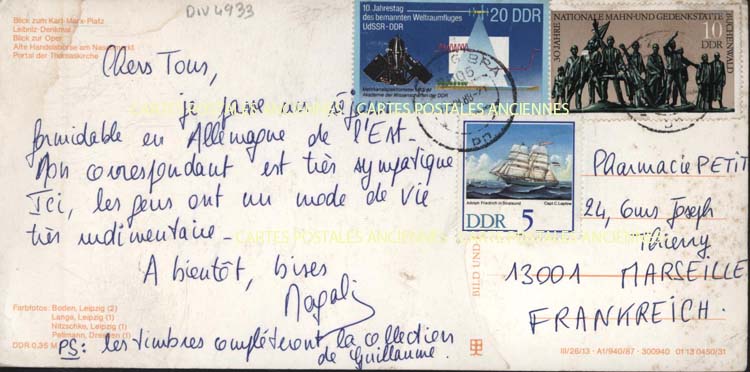 DIV 4933
Blick zum Karl-Marx-Platz
Leibniz-Denkmal
Blick zur Oper
Alte Handelsbörse am Naschmarkt
Portal der Thomaskirche
10. Jahrestag
des bemannten Weltraumfluges
UdSSR-DDR
20 DDR
Akademie der Wissenschaften der DDR
30 JAHRE NATIONALE MAHN-UND GEDENKSTÄTTE BUCHENWALD
10
DDR
Chers Tous,
je passe un séjour
CARTES POSTALES ANCIENNES
formidable en Allemagne de l'Est.
Mon correspondant est très sympatique
Ici, les gens ont un mode de vie
très rudimentaire
CARTES POSTALES ANCIENNES
A bientôt, bises
Magali
PS: les timbres complèteront la collection
de Guillaume.
DDR 5
BILD UND
Pharmacie PETIT
24, cours Joseph
Thierry
13001 MARSEILLE
FRANKREICH.
Farbfotos: Boden, Leipzig (2)
Lange, Leipzig (1)
Nitzschke, Leipzig (1)
Petlmann, Dresden (1)
DDR 0,35 M
III/26/13 · A1/940/87 · 300940 01 13 0450/31